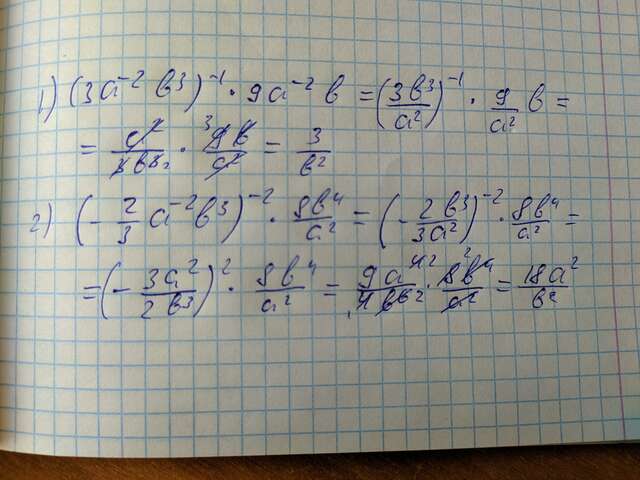 1) (3a⁻² b³)⁻¹ · 9a⁻² b = (3b³/a²)⁻¹ · 9/a² b =
= a²/3b³ · 9b/a² = 3/b²
2) (- 2/3 a⁻² b³)⁻² · 8b⁴/a² = (- 2b³/3a²)⁻² · 8b⁴/a² =
= (- 3a²/2b³)² · 8b⁴/a² = 9a⁴/4b⁶ · 8b⁴/a² = 18a²/b²